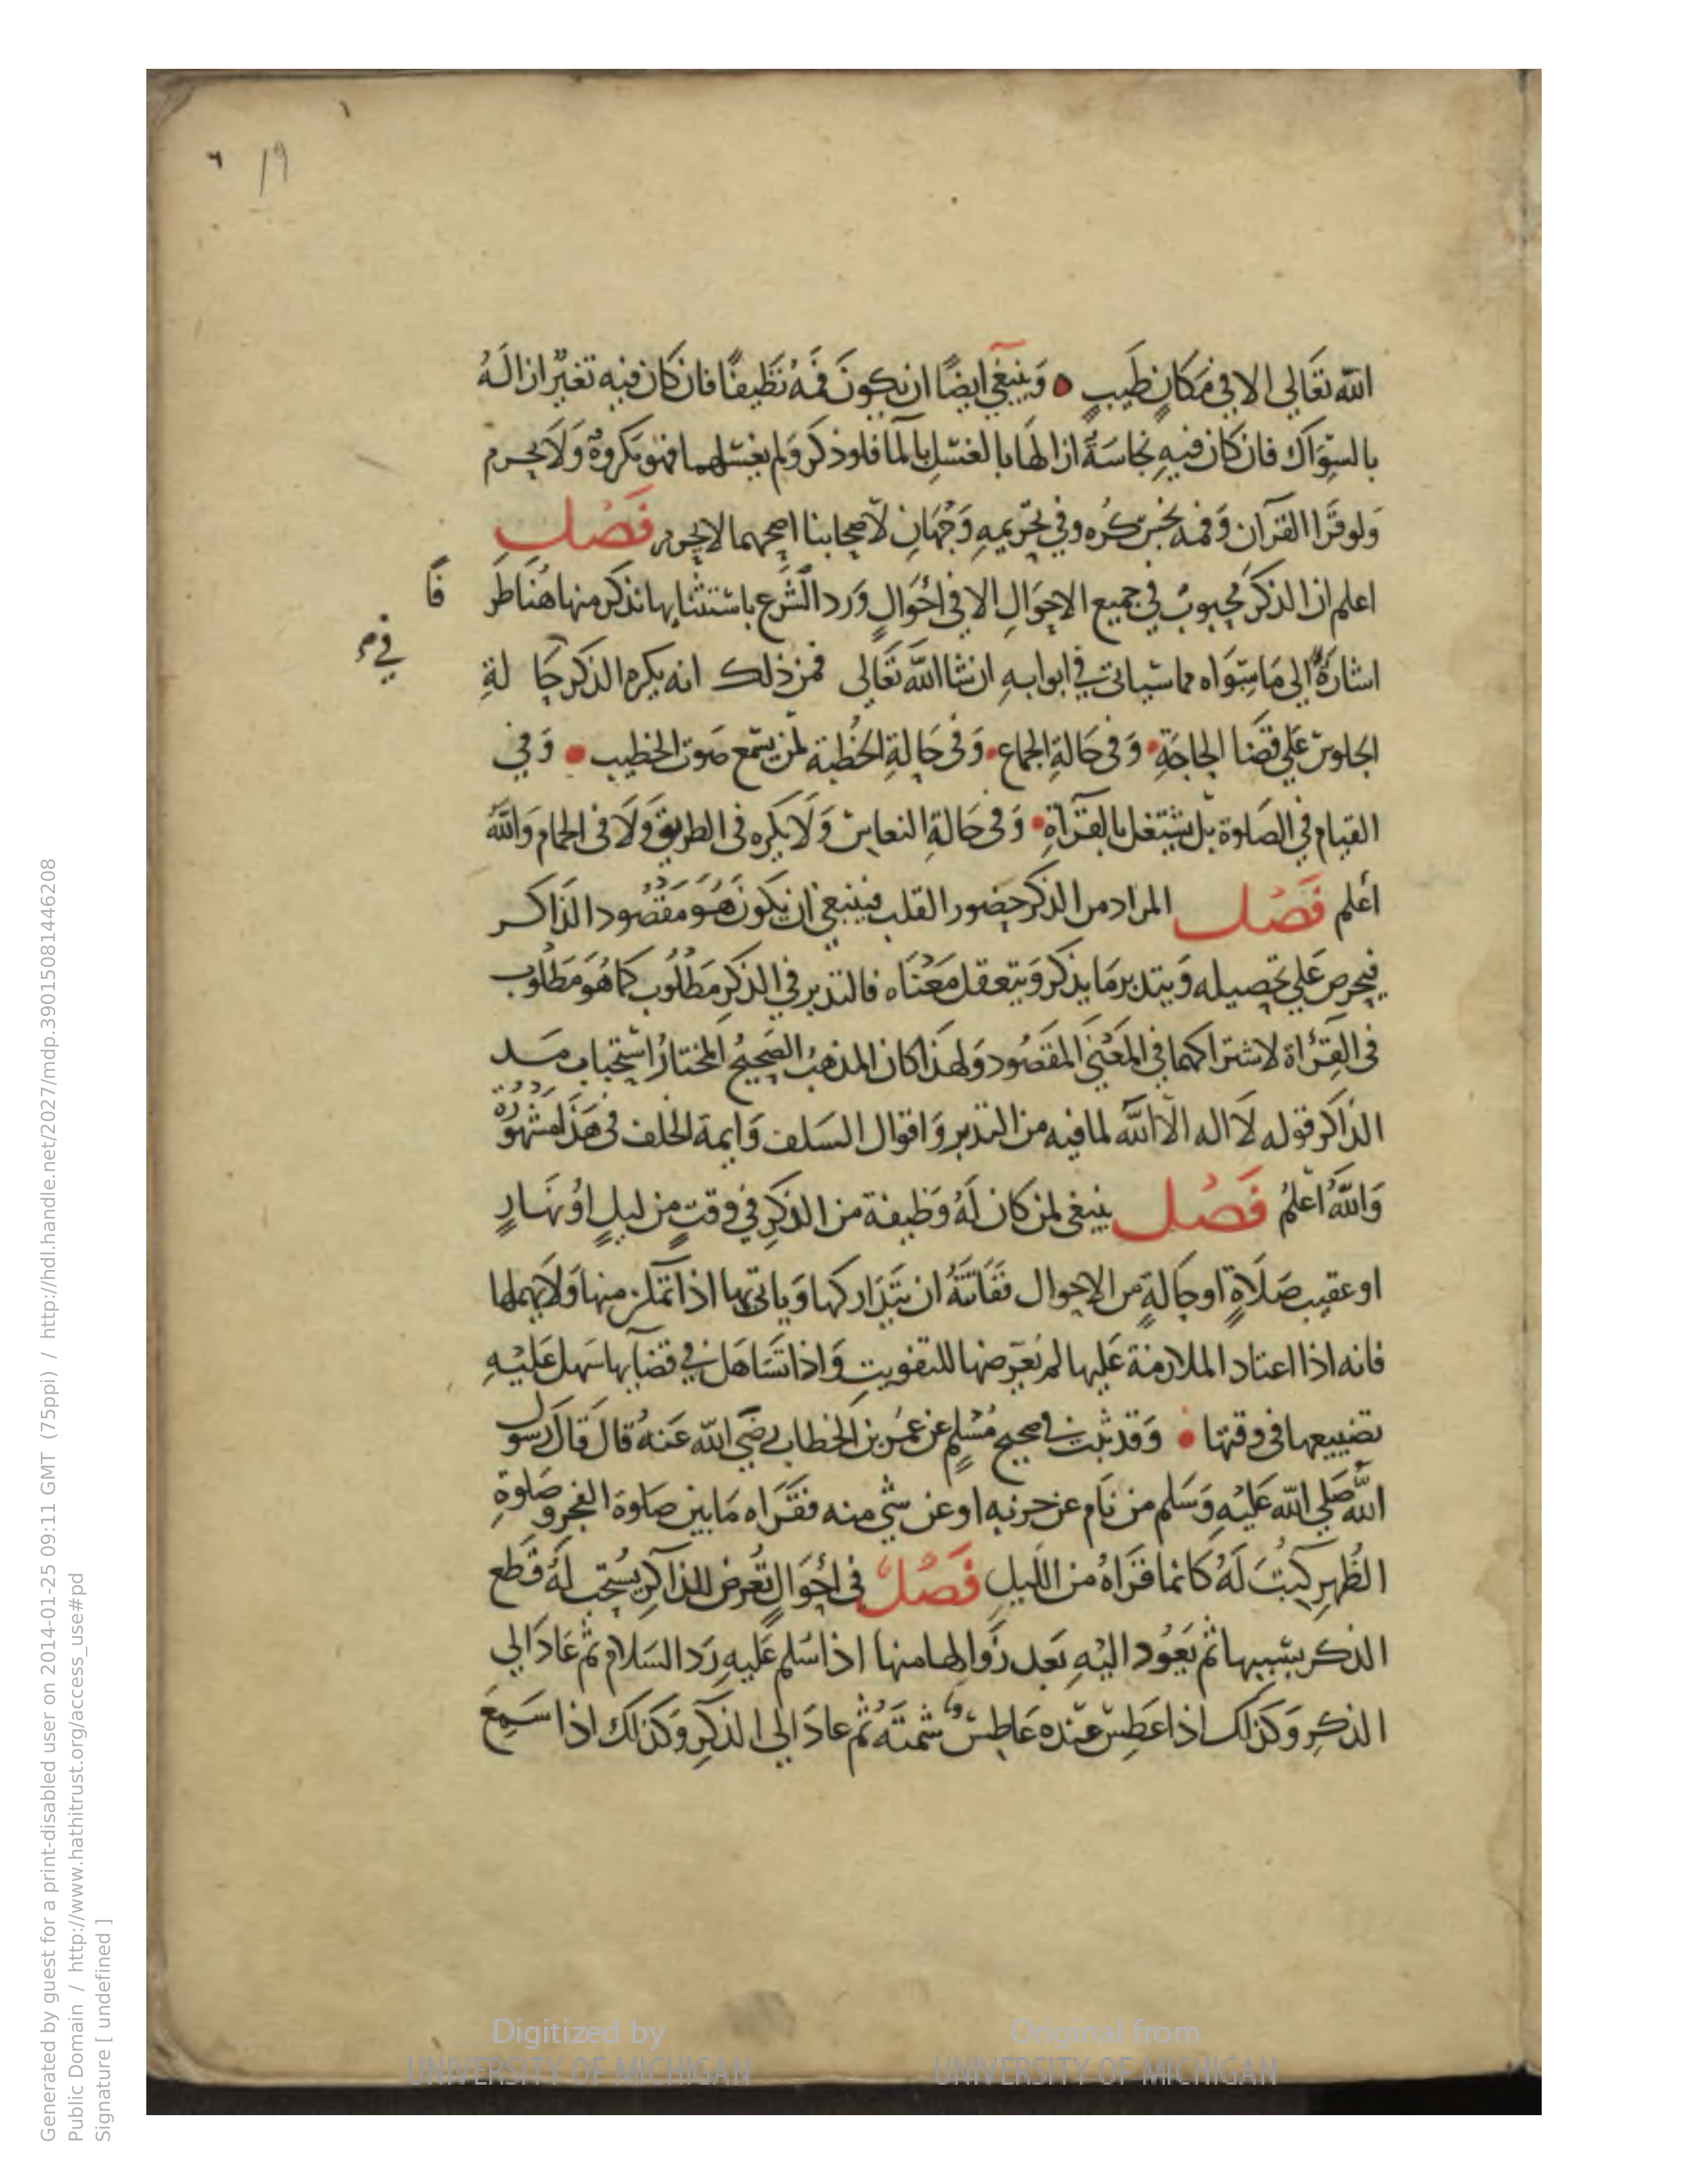 ١
٦ 19
الله تعَالى الا في مَكانٍ طَيبٍ • وَينبغي ايضًا ان يكونَ فمَهُ نَظيفًا فان كان فيه تغيّرٌ ازالَهُ
بالسِّوَاك فان كان فيهِ نجاسَةٌ ازالهَا بالغسْلِ بالمآ فلو ذكرَ وَلم يغسْلهما فهوَ مكروهٌ وَلَا يحرم
وَلو قرَا القرآن وَفمه نجسٌ كُره وفي تحرّيمهِ وَجْهَانِ لأصحابنا اصحهما لا يحرم فَصْل
اعلم ان الذكرَ محبوبٌ في جميع الاحوَالِ الا في احْوَالٍ وَرد الشَّرع باستثنَايها نذكر منها هُنَا طَر
فًا
اشارَةً الى مَا سِوَاه مما سيَاتي في ابوابهِ ان شا اللهَ تعَالى فمن ذلك انه يكره الذكر حَا لةِ
في
الجلوسْ عَلى قضَا الحاجَةِ • وَفى حَالةِ الجماع • وَفى حَالةِ الخُطبة لمن يسمَع صَوت الخطيب • وَفي
القيام في الصَلوة بل يشتغل بالقرَآة • وَفى حَالةِ النعاسْ وَلَا يكره فى الطريق وَلَا فى الحمام وَاللهُ
أعلم فَصْل المراد من الذكر حضور القلب فينبغى ان يكونَ هُوَ مقصُود الذَاكر
فيحرص عَلى تحصيله وَيتدبر مَا يذكر وَيتعقل مَعْنَاه فالتدبر في الذكرِ مَطلُوب كما هُوَ مَطلُوب
فى القِرُاة لاشتراكهما في المَعْنَى المقصُود وَلهذا كان المذهبُ الصَحيحُ المختارُ استحبَاب مَد
الذاكر قوله لَا اله الّا الله لما فيه من التدبر وَاقوال السَلف وَايمة الخلف فى هَذا مَشهُورة
وَاللهُ اعلمُ فَصْل ينبغى لمن كان لَهُ وَظيفة من الذكرِ في وقتٍ من ليلٍ اوْ نهَارٍ
او عقيب صَلَاةٍ او حَالةٍ من الاحوال ففَاتتهُ ان يتَدَاركها وَياتي بها اذا تمكن منها وَلَا يهملها
فانه اذا اعتاد الملازمة عَليها لم يُعَرّضها للتفويتِ وَاذا تَسَاهَل في قضآيها سَهل عَليْهِ
تضييعها فى وقتها • وَقد ثبت في صحيح مُسْلمٍ عن عمَر بن الخطاب رضَى الله عَنهُ قالَ قالَ رسول
اللهِ صَلى الله عَليْهِ وَسَلم من نَام عن حزبه او عن شىٍ منه فقَرَاه مَا بين صَلوة الفجر و صَلوةِ
الظهرِ كتبَ لَهُ كانما قرَاهُ من الليلِ فَصْلٌ فى احْوَالٍ تعرض للذاكر يُستحب لهُ قَطع
الذكر بسَببها ثم يَعُود اليْهِ بَعد زوَالها منها اذا سُلم عَليهِ رَد السَلام ثم عَادَ الي
الذكِر وَكذلك اذا عَطِسْ عنده عَاطِسْ شمتَهُ ثُم عادَ الي الذكر وَكذلك اذا سَمِعَ